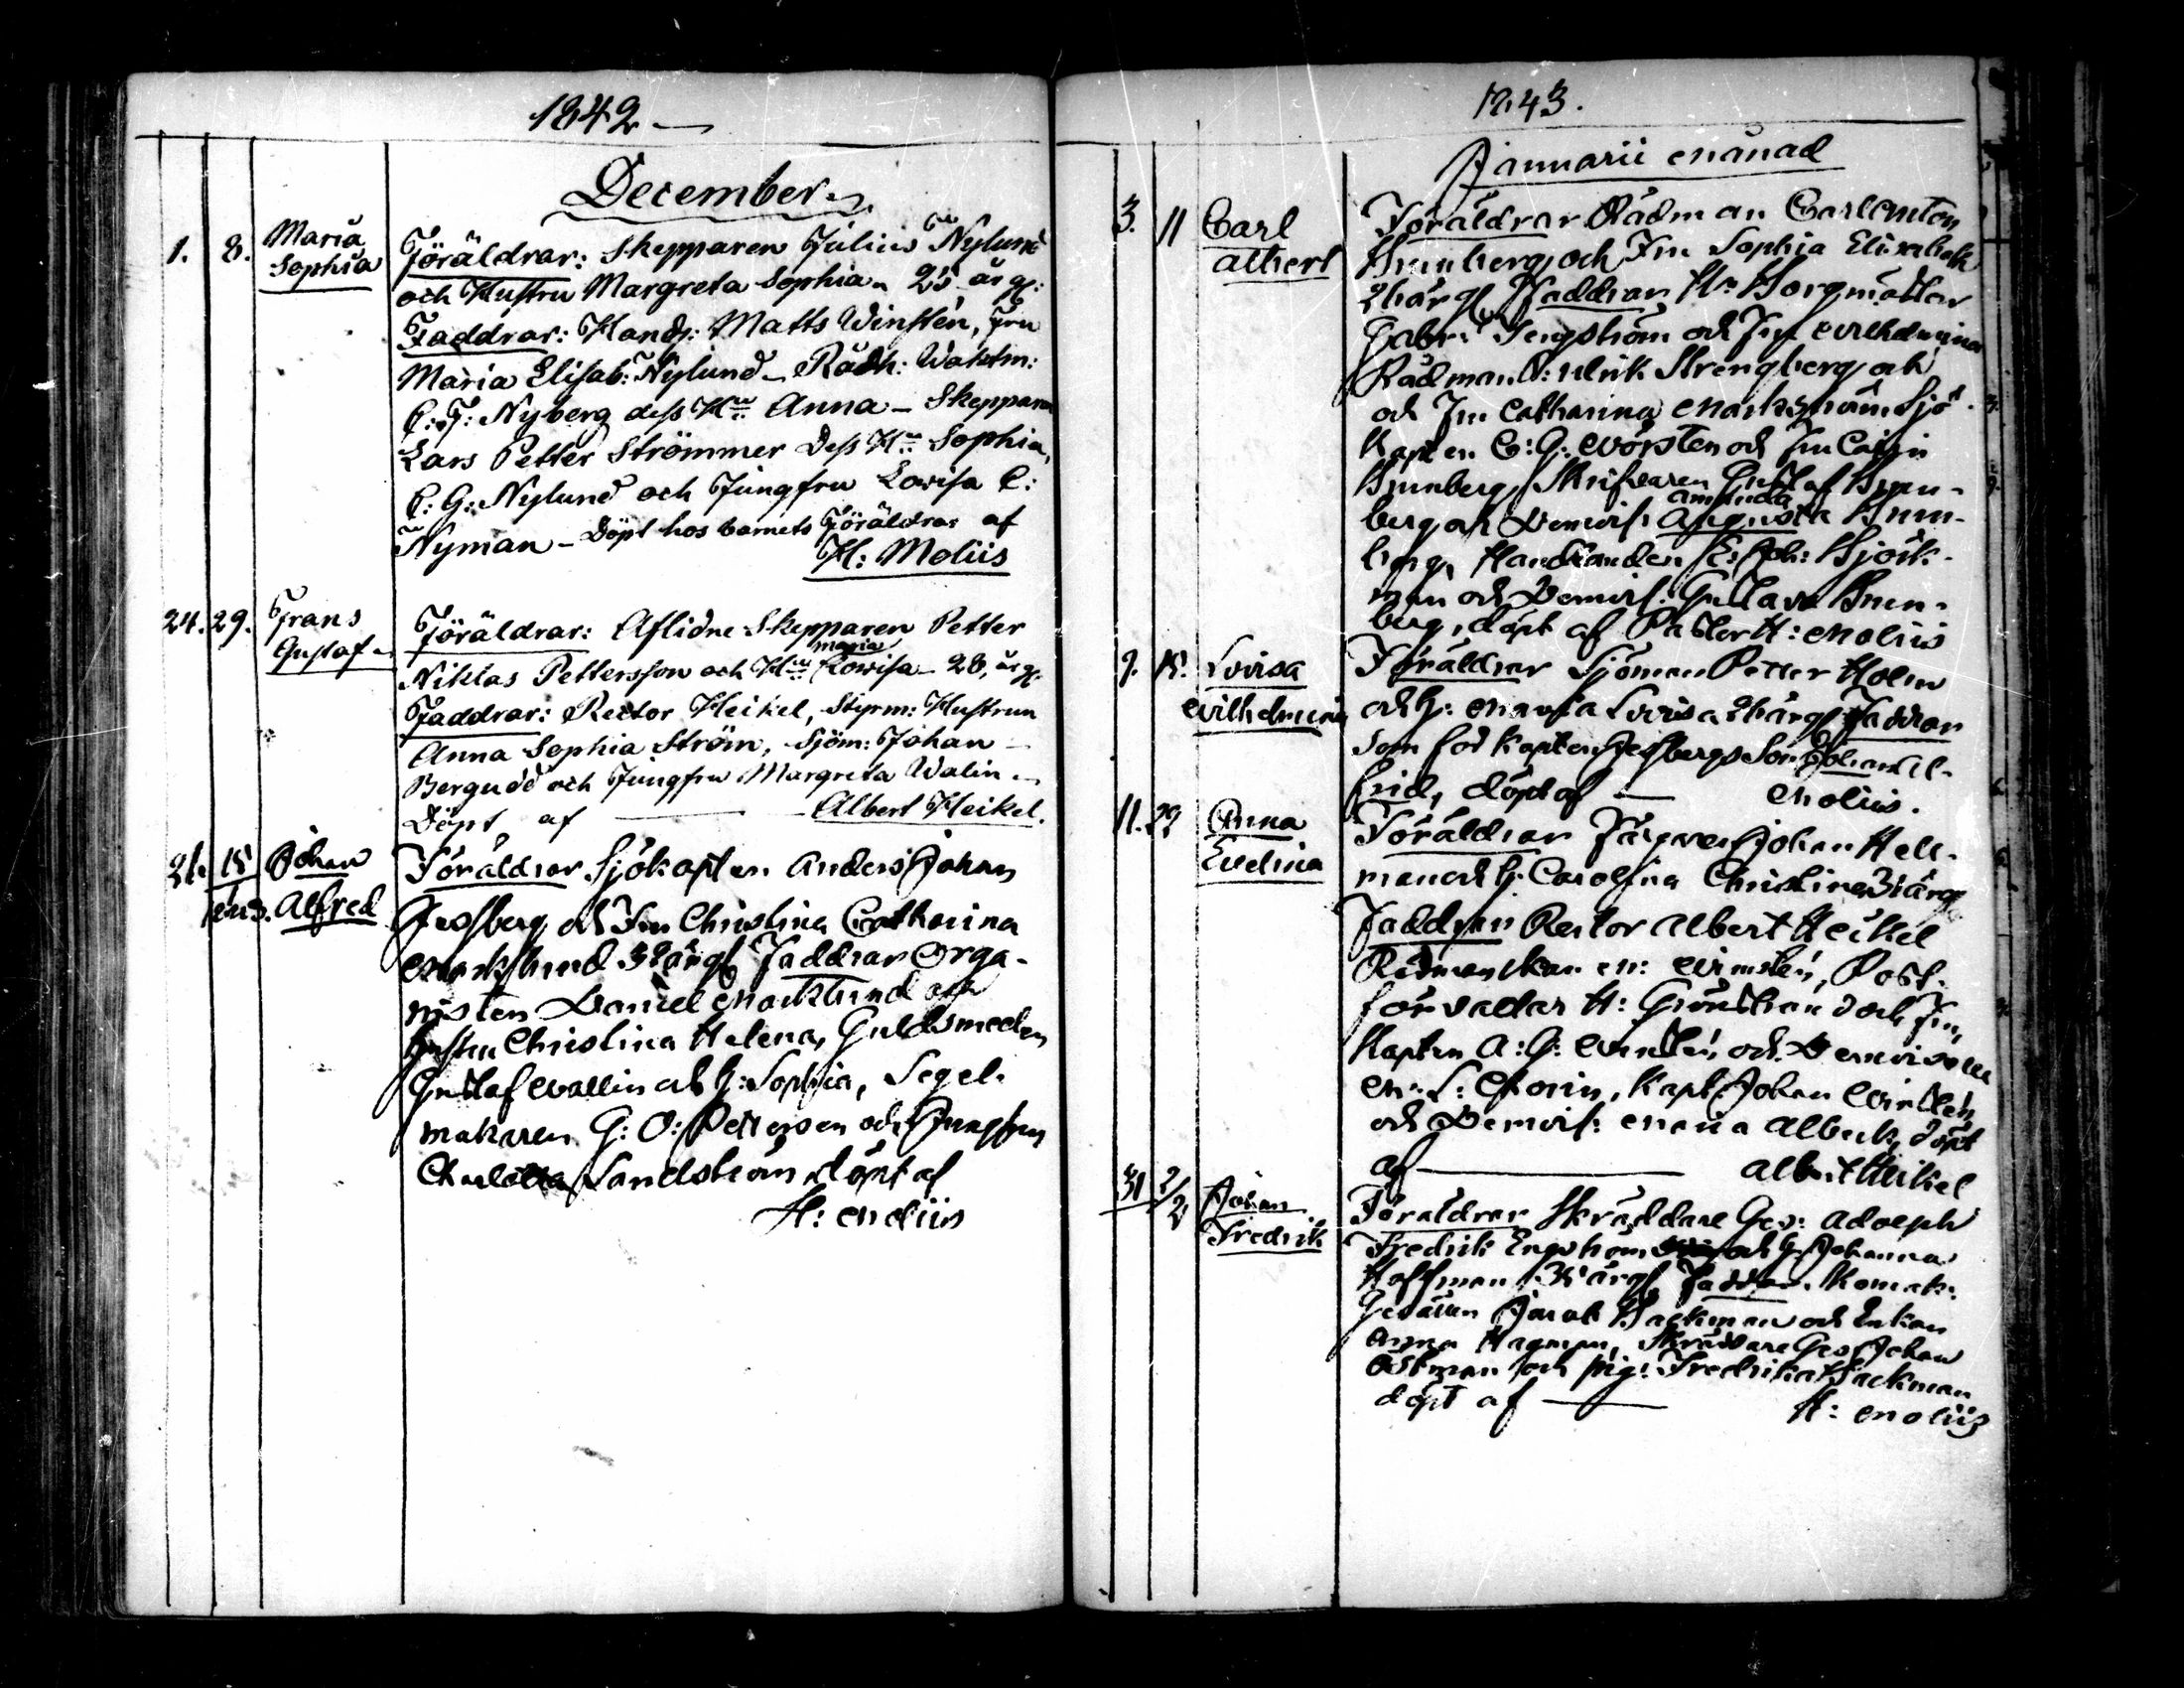 1842
December
1. 8. Maria Sophia
Föräldrar: Skepparen Julius Nylund
och Hustru Margreta Sophia 25 år gl:
Faddrar: Handl: Matts Winstén, Fru
Maria Elisab: Nylund - Rådh: Waktm:
C: J: Nyberg dess H:u Anna - Skepparen
Lars Petter Strömmer Dess H:u Sophia,
C: G: Nylund och Jungfru Lovisa C:
Nyman - Döpt hos barnets Föräldrar af
H: Moliis
24. 29. Frans Gustaf
Föräldrar: Aflidne Skepparen Petter
Niklas Pettersson och H:u maria Lovisa 28, år gl.
Faddrar: Rector Heikel, Styrm: Hustrun
Anna Sophia Ström, Sjöm: Johan
Bergudd och Jungfru Margreta Walin
Döpt af Albert Heikel.
15 Johan Alfred
Föräldrar Sjökapten Anders Johan
och Fru Christina Catharina
Marklund 32 årgl Faddrar Orga-
nisten Daniel Marklund och
hustru Christina Helena, Guldsmeden
Gustaf Wallin och h: Sophia, Segel-
makaren G: O: Petterson och Jungfru
Charlotta Sandström döpt af
H: Moliis
1843.
Januarii Månad
3. 11 Carl Albert
Föräldrar Rådman Carl Anton
Brunberg och Fru Sophia Elisabeth
årgl Faddrar Hr Borgmästar
Gabr: Tengström och Fru Wilhelmina
Rådman Ulrik Strengberg och
och Fru Catharina Markström Sjö
kapten C: G: Worsten och Fru Cajsa
Brunberg, Skrifvaren Gustaf Brun-
berg och Demois: Amanda Augusta Brun-
berg, Handlanden Joh: Björk-
man och Demois: Gustava Brun-
berg, döpt af Pastor H: Moliis
9. 15. Lovisa Wilhelmina
Föräldrar Sjöman Petter Holm
och h: Maria Lovisa årgl Faddrar
Som för Kapten Son Johan Al-
frid, döpt af Moliis.
11. 22 Anna Evelina
Föräldrar Färgaren Johan Hell-
man och h: Carolina Christina 31 årg
Faddrar Rector Albert Heikel
Rådman Winstén, Post-
förvaltar H: och Fru,
Kapten A: G: Winstén och Demoiselle
M: L: Chorin, Kapt: Johan Winstén
och Demois: Maria Albeck, döpt
af Albert Heikel
31 2/2 Johan Fredrik
Föräldrar Skräddare Ges: Adolph
Fredrik Engström och h: Johanna
Hoffman årgl, Faddrar
Gesällen Jacob Backman och Enkan
Anna Hagman, Skräddare Ges: Johan
Östman och pig: Fredrika Backman
döpt af H: Moliis